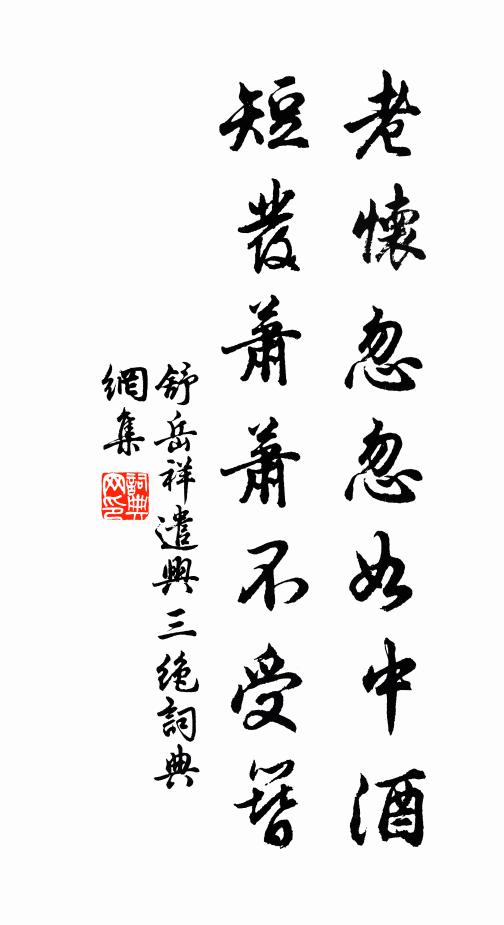 老懷忽忽如中酒
短發蕭蕭不受簪
舒岳祥遣興三絕詞典
網集
詞典
网印